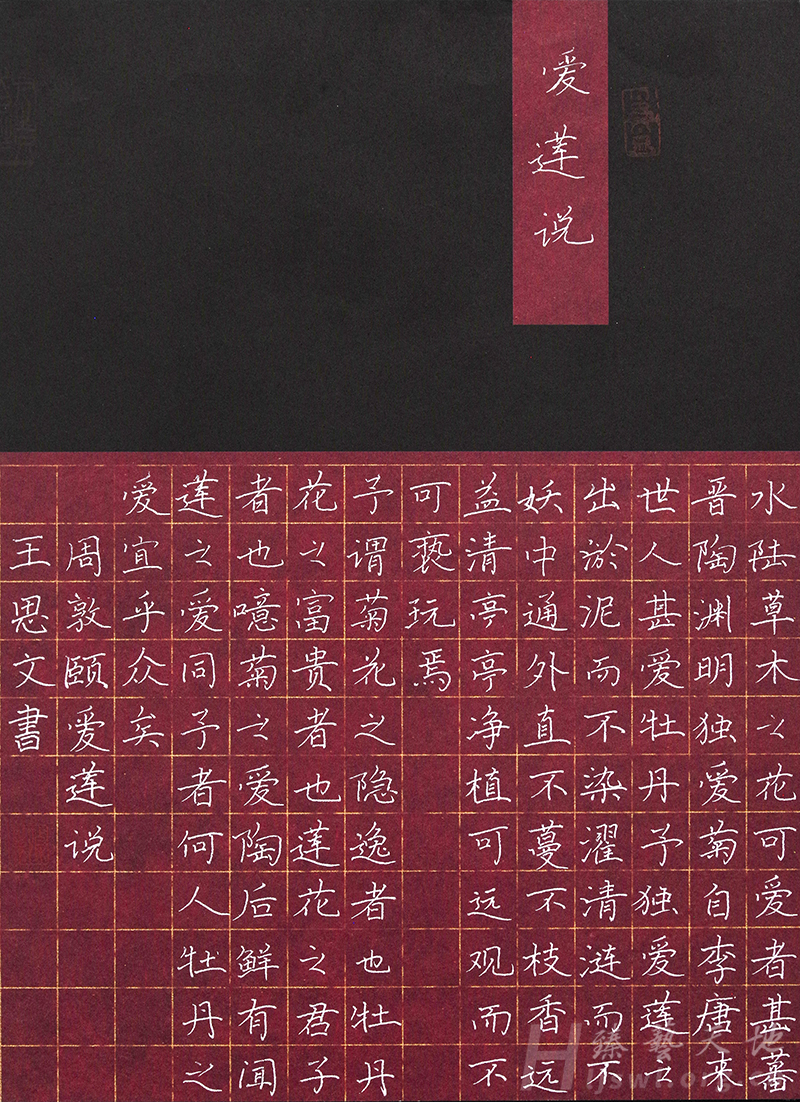 爱莲说
水陆草木之花可爱者甚蕃
晋陶渊明独爱菊自李唐来
世人甚爱牡丹予独爱莲之
出淤泥而不染濯清涟而不
妖中通外直不蔓不枝香远
益清亭亭净植可远观而不
可亵玩焉
予谓菊花之隐逸者也牡丹
花之富贵者也莲花之君子
者也噫菊之爱陶后鲜有闻
莲之爱同予者何人牡丹之
爱宜乎众矣
周敦颐爱莲说
王思文書
臻藝天地